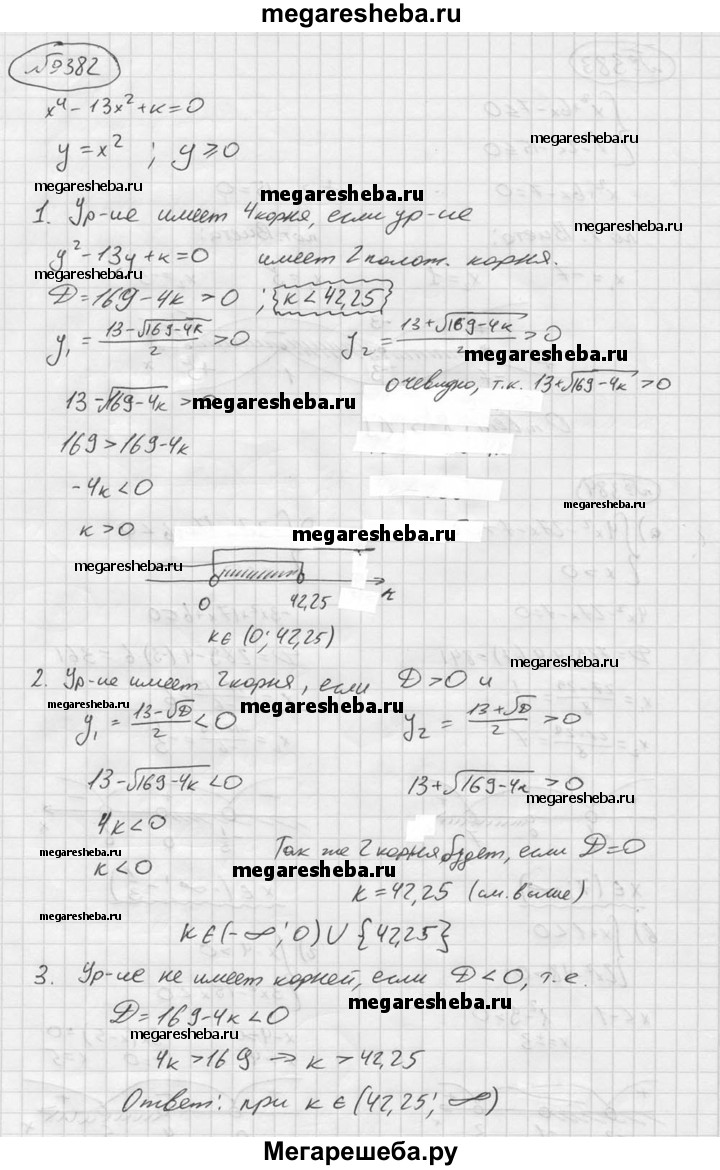 megaresheba.ru
№382
x⁴ - 13x² + к = 0
y = x² ; y ⩾ 0
megaresheba.ru
megaresheba.ru
megaresheba.ru
1. Ур-ие имеет 4 корня, если ур-ие
y² - 13y + к = 0 имеет 2 полож. корня.
megaresheba.ru
D = 169 - 4к > 0 ; {к < 42,25}
y₁ = (13 - √(169 - 4к))/2 > 0 y₂ = (13 + √(169 - 4к))/2 > 0
megaresheba.ru
очевидно, т.к. 13 + √(169 - 4к) > 0
13 - √(169 - 4к) >
megaresheba.ru
169 > 169 - 4к
- 4к < 0
megaresheba.ru
к > 0
megaresheba.ru
megaresheba.ru
0 42,25 к
к ∈ (0; 42,25)
megaresheba.ru
2. Ур-ие имеет 2 корня, если D > 0 и
megaresheba.ru
megaresheba.ru
y₁ = (13 - √D)/2 < 0 y₂ = (13 + √D)/2 > 0
13 - √(169 - 4к) < 0 13 + √(169 - 4к) > 0
megaresheba.ru
4к < 0
Так же 2 корня будет, если D = 0
megaresheba.ru
к < 0
megaresheba.ru
к = 42,25 (см. выше)
megaresheba.ru
к ∈ (-∞; 0) ∪ {42,25}
3. Ур-ие не имеет корней, если D < 0, т.е.
megaresheba.ru
D = 169 - 4к < 0
megaresheba.ru
4к > 169 ⇒ к > 42,25
Ответ: при к ∈ (42,25; ∞)
Мегарешеба.ру